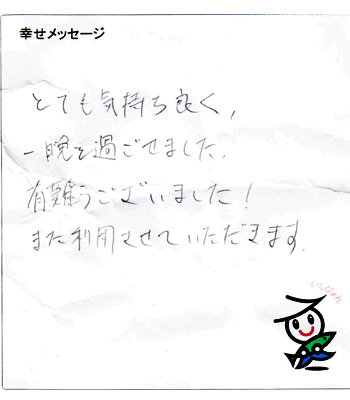 幸せメッセージ
とても気持ち良く,
一晩を過ごせました.
有難うございました!
また利用させていただきます.